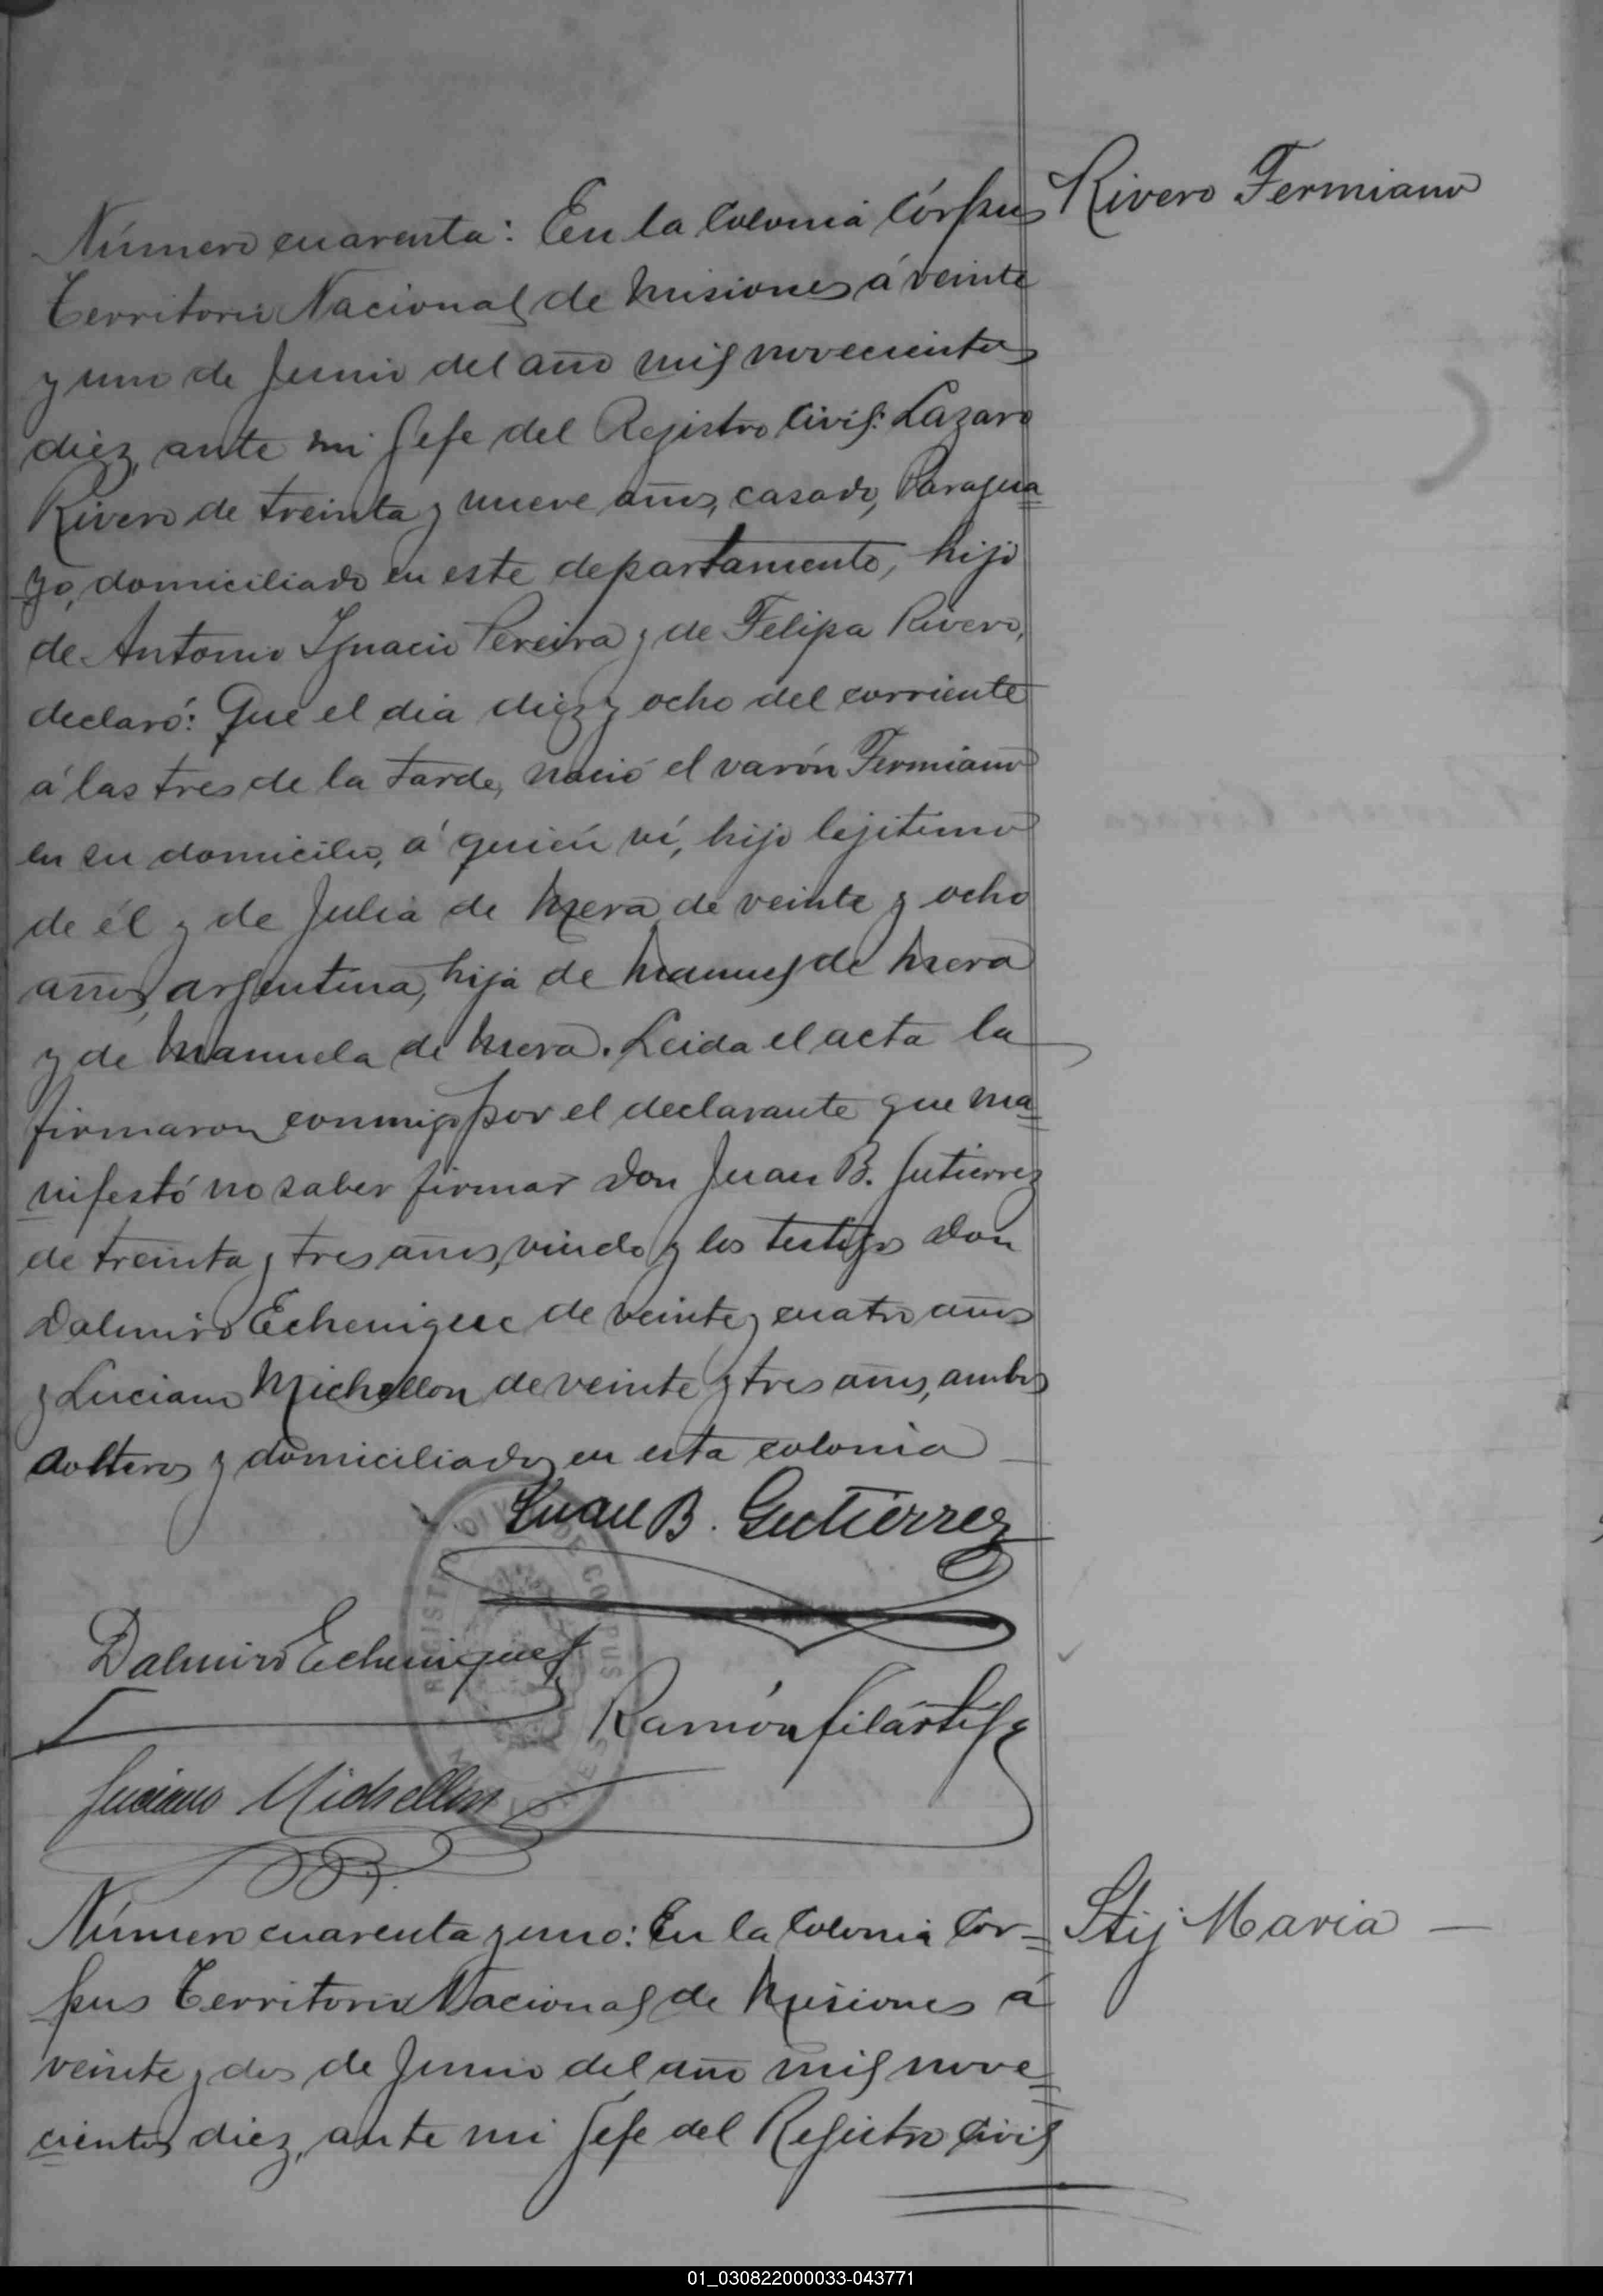 Rivero Fermiano
Número cuarenta: En la Colonia Córpus
Territorio Nacional de Misiones á veinte
y uno de Junio del año mil novecientos
diez, ante mi Jefe del Registro Civil: Lazaro
Rivero de treinta y nueve años, casado, Paragua=
yo, domiciliado en este departamento, hijo
de Antonio Ignacio Pereira y de Felipa Rivero,
declaró: Que el dia diez y ocho del corriente
á las tres de la tarde, nació el varón Fermiano
en su domicilio, á quién ví, hijo lejitimo
de él y de Julia de Mera de veinte y ocho
años, argentina, hija de Manuel de Mera
y de Manuela de Mera. Leida el acta la
firmaron conmigo por el declarante que ma=
nifestó no saber firmar Don Juan B. Gutierrez
de treinta y tres años, viudo y los testigos Don
Dalmiro Echenique de veinte y cuatro años
y Luciano Michellon de veinte y tres años, ambos
solteros y domiciliados en esta colonia
Juan B. Gutierrez
Dalmiro Echenique
Ramón Filártiga
Luciano Michellon
Stij Maria
Número cuarenta y uno: En la Colonia Cor=
pus Territorio Nacional de Misiones á
veinte y dos de Junio del año mil nove=
cientos diez, ante mi Jefe del Registro Civil
01_030822000033-043771